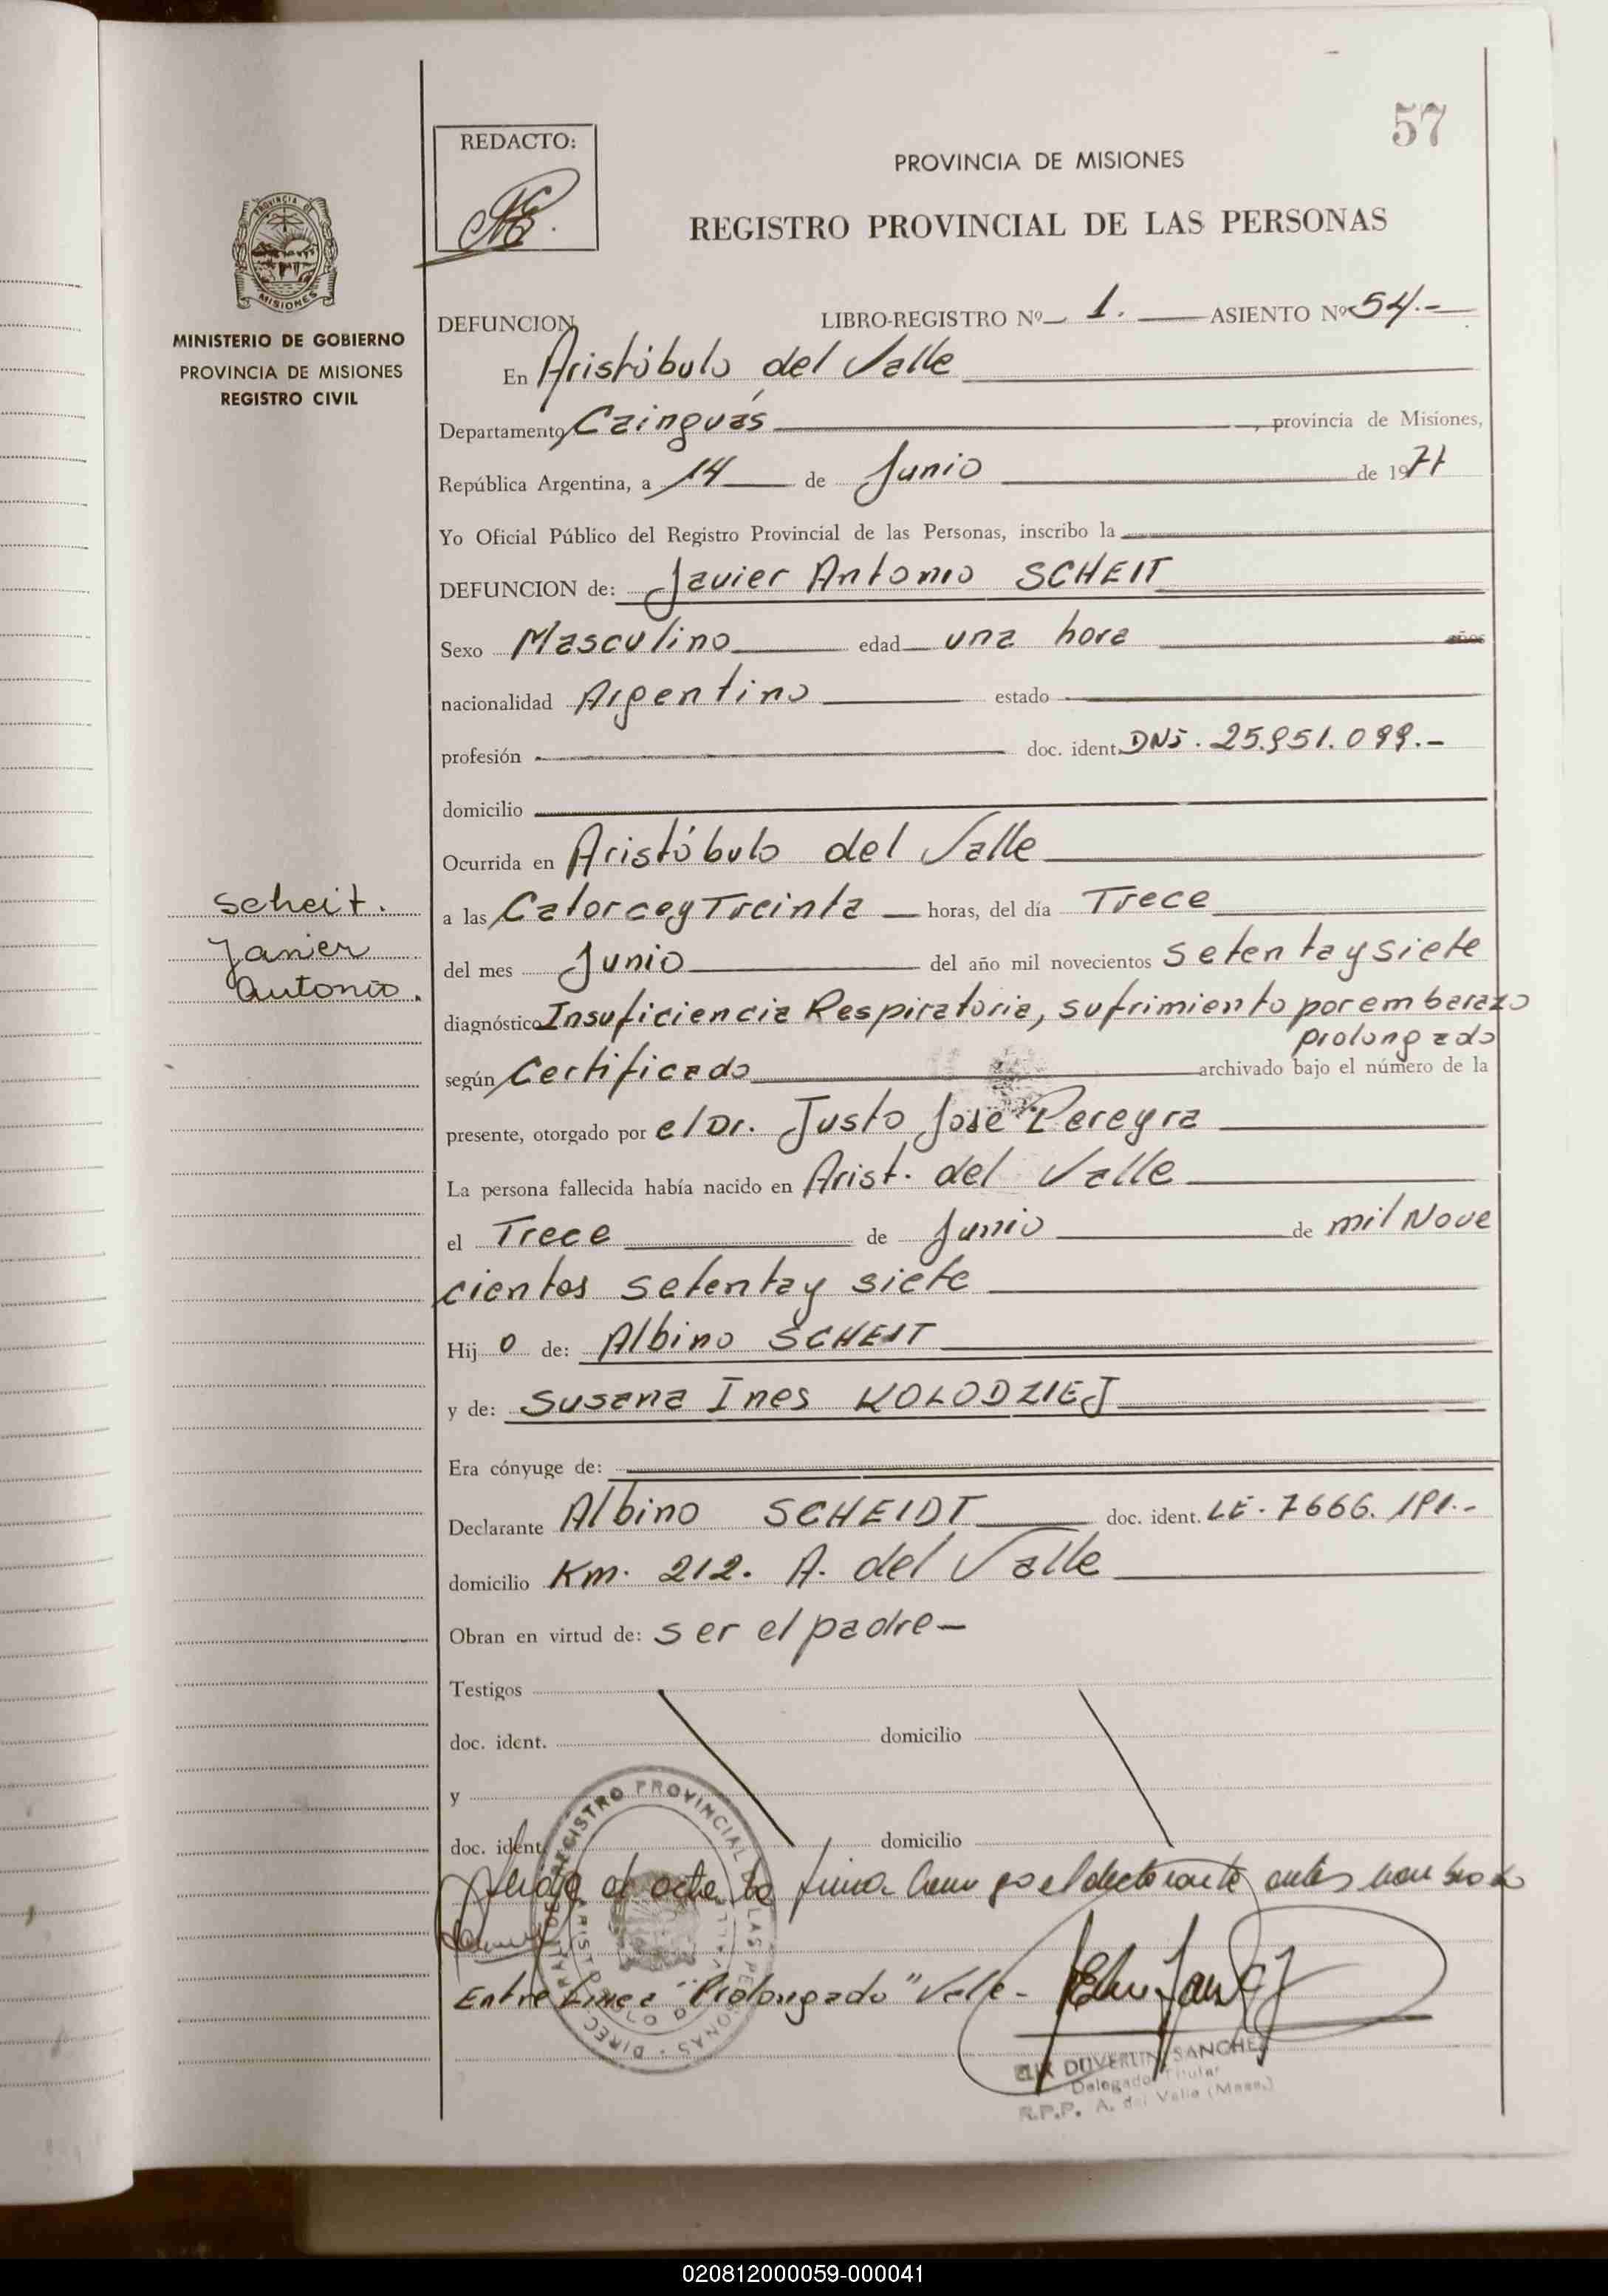 57
REDACTO:
PROVINCIA DE MISIONES
REGISTRO PROVINCIAL DE LAS PERSONAS
PROVINCIA DE
MISIONES
MINISTERIO DE GOBIERNO
PROVINCIA DE MISIONES
REGISTRO CIVIL
DEFUNCION LIBRO-REGISTRO Nº 1. ASIENTO Nº 54.-
En Aristóbulo del Valle
Departamento Cainguás, provincia de Misiones,
República Argentina, a 14 de Junio de 1977
Yo Oficial Público del Registro Provincial de las Personas, inscribo la
DEFUNCION de: Javier Antonio SCHEIT
Sexo Masculino edad una hora años
nacionalidad Argentino estado
profesión doc. ident. DNI. 25.951.099.-
domicilio
Ocurrida en Aristóbulo del Valle
Scheit.
Javier
Antonio.
a las Catorce y Treinta horas, del día Trece
del mes Junio del año mil novecientos setenta y siete
diagnóstico Insuficiencia Respiratoria, sufrimiento por embarazo
prolongado
según Certificado archivado bajo el número de la
presente, otorgado por el Dr. Justo José Pereyra
La persona fallecida había nacido en Arist. del Valle
el Trece de Junio de mil Nove
cientos setenta y siete
Hijo de: Albino SCHEIT
y de: Susana Ines KOLODZIEJ
Era cónyuge de:
Declarante Albino SCHEIDT doc. ident. LE. 7666.191.-
domicilio Km. 212. A. del Valle
Obran en virtud de: ser el padre-
Testigos
doc. ident. domicilio
y
doc. ident. domicilio
el acta la firma el declarante antes nombrado
Entre Linea "Prolongado" Vale-
REGISTRO PROVINCIAL DE LAS PERSONAS
SANCHEZ
Delegado Titular
R.P.P. A. del Valle (Mnes.)
020812000059-000041